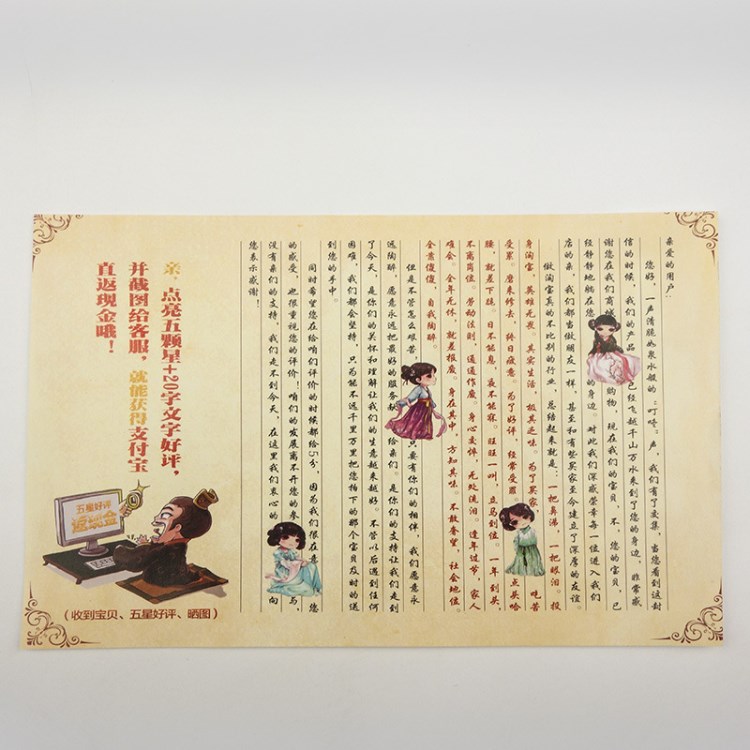 亲爱的用户:
您好,一声清脆如泉水般的“叮咚”声,我们有了交集,当您看到这封
信的时候,我们的产品 已经飞越千山万水来到了您的身边,非常感
谢您在我们商城 购物,现在我们的宝贝,不,您的宝贝,已
经静静地躺在您 的身边。对此我们深感荣幸每一位进入我们
店的亲,我们都当做朋友一样,甚至和有些买家至今建立了深厚的友谊。
做淘宝真的不比别的行业,总结起来就是:一把鼻涕,一把眼泪。投
身淘宝,英雄无畏。其实生活,极其乏味。为了买家 吃苦
受累。磨来修去,终日疲惫。为了好评,经常受罪。 点头哈
腰,就差下跪。日不能息,夜不能寐。旺旺一叫,立马到位。一年到头,
不离岗位。劳动法则,通通作废。身心交悴,无处流泪。逢年过节,家人
难会。全年无休,就差报废。身在其中,方知其味。不敢奢望,社会地位。
全靠傻傻,自我陶醉。
但是不管怎么艰苦, 只要有你们的相伴,我们愿意永
远陶醉,愿意永远把最好的服务献 给亲们。是你们的支持让我们走到
了今天,是你们的关怀和理解让我们的生意越来越好。不管以后遇到任何
困难,我们都会坚持,只为能不远千里万里把您拍下的那个宝贝及时的送
到您的手中。
同时希望您在给咱们评价的时候都给5分,因为我们很在意 您
的感受,也很重视您的评价!咱们的发展离不开您的参 与,
没有亲们的支持,我们走不到今天,在这里我们衷心的 向
您表示感谢!
亲,点亮五颗星+20字文字好评,
并截图给客服,就能获得支付宝
直返现金哦!
五星好评
返现金
(收到宝贝、五星好评、晒图)